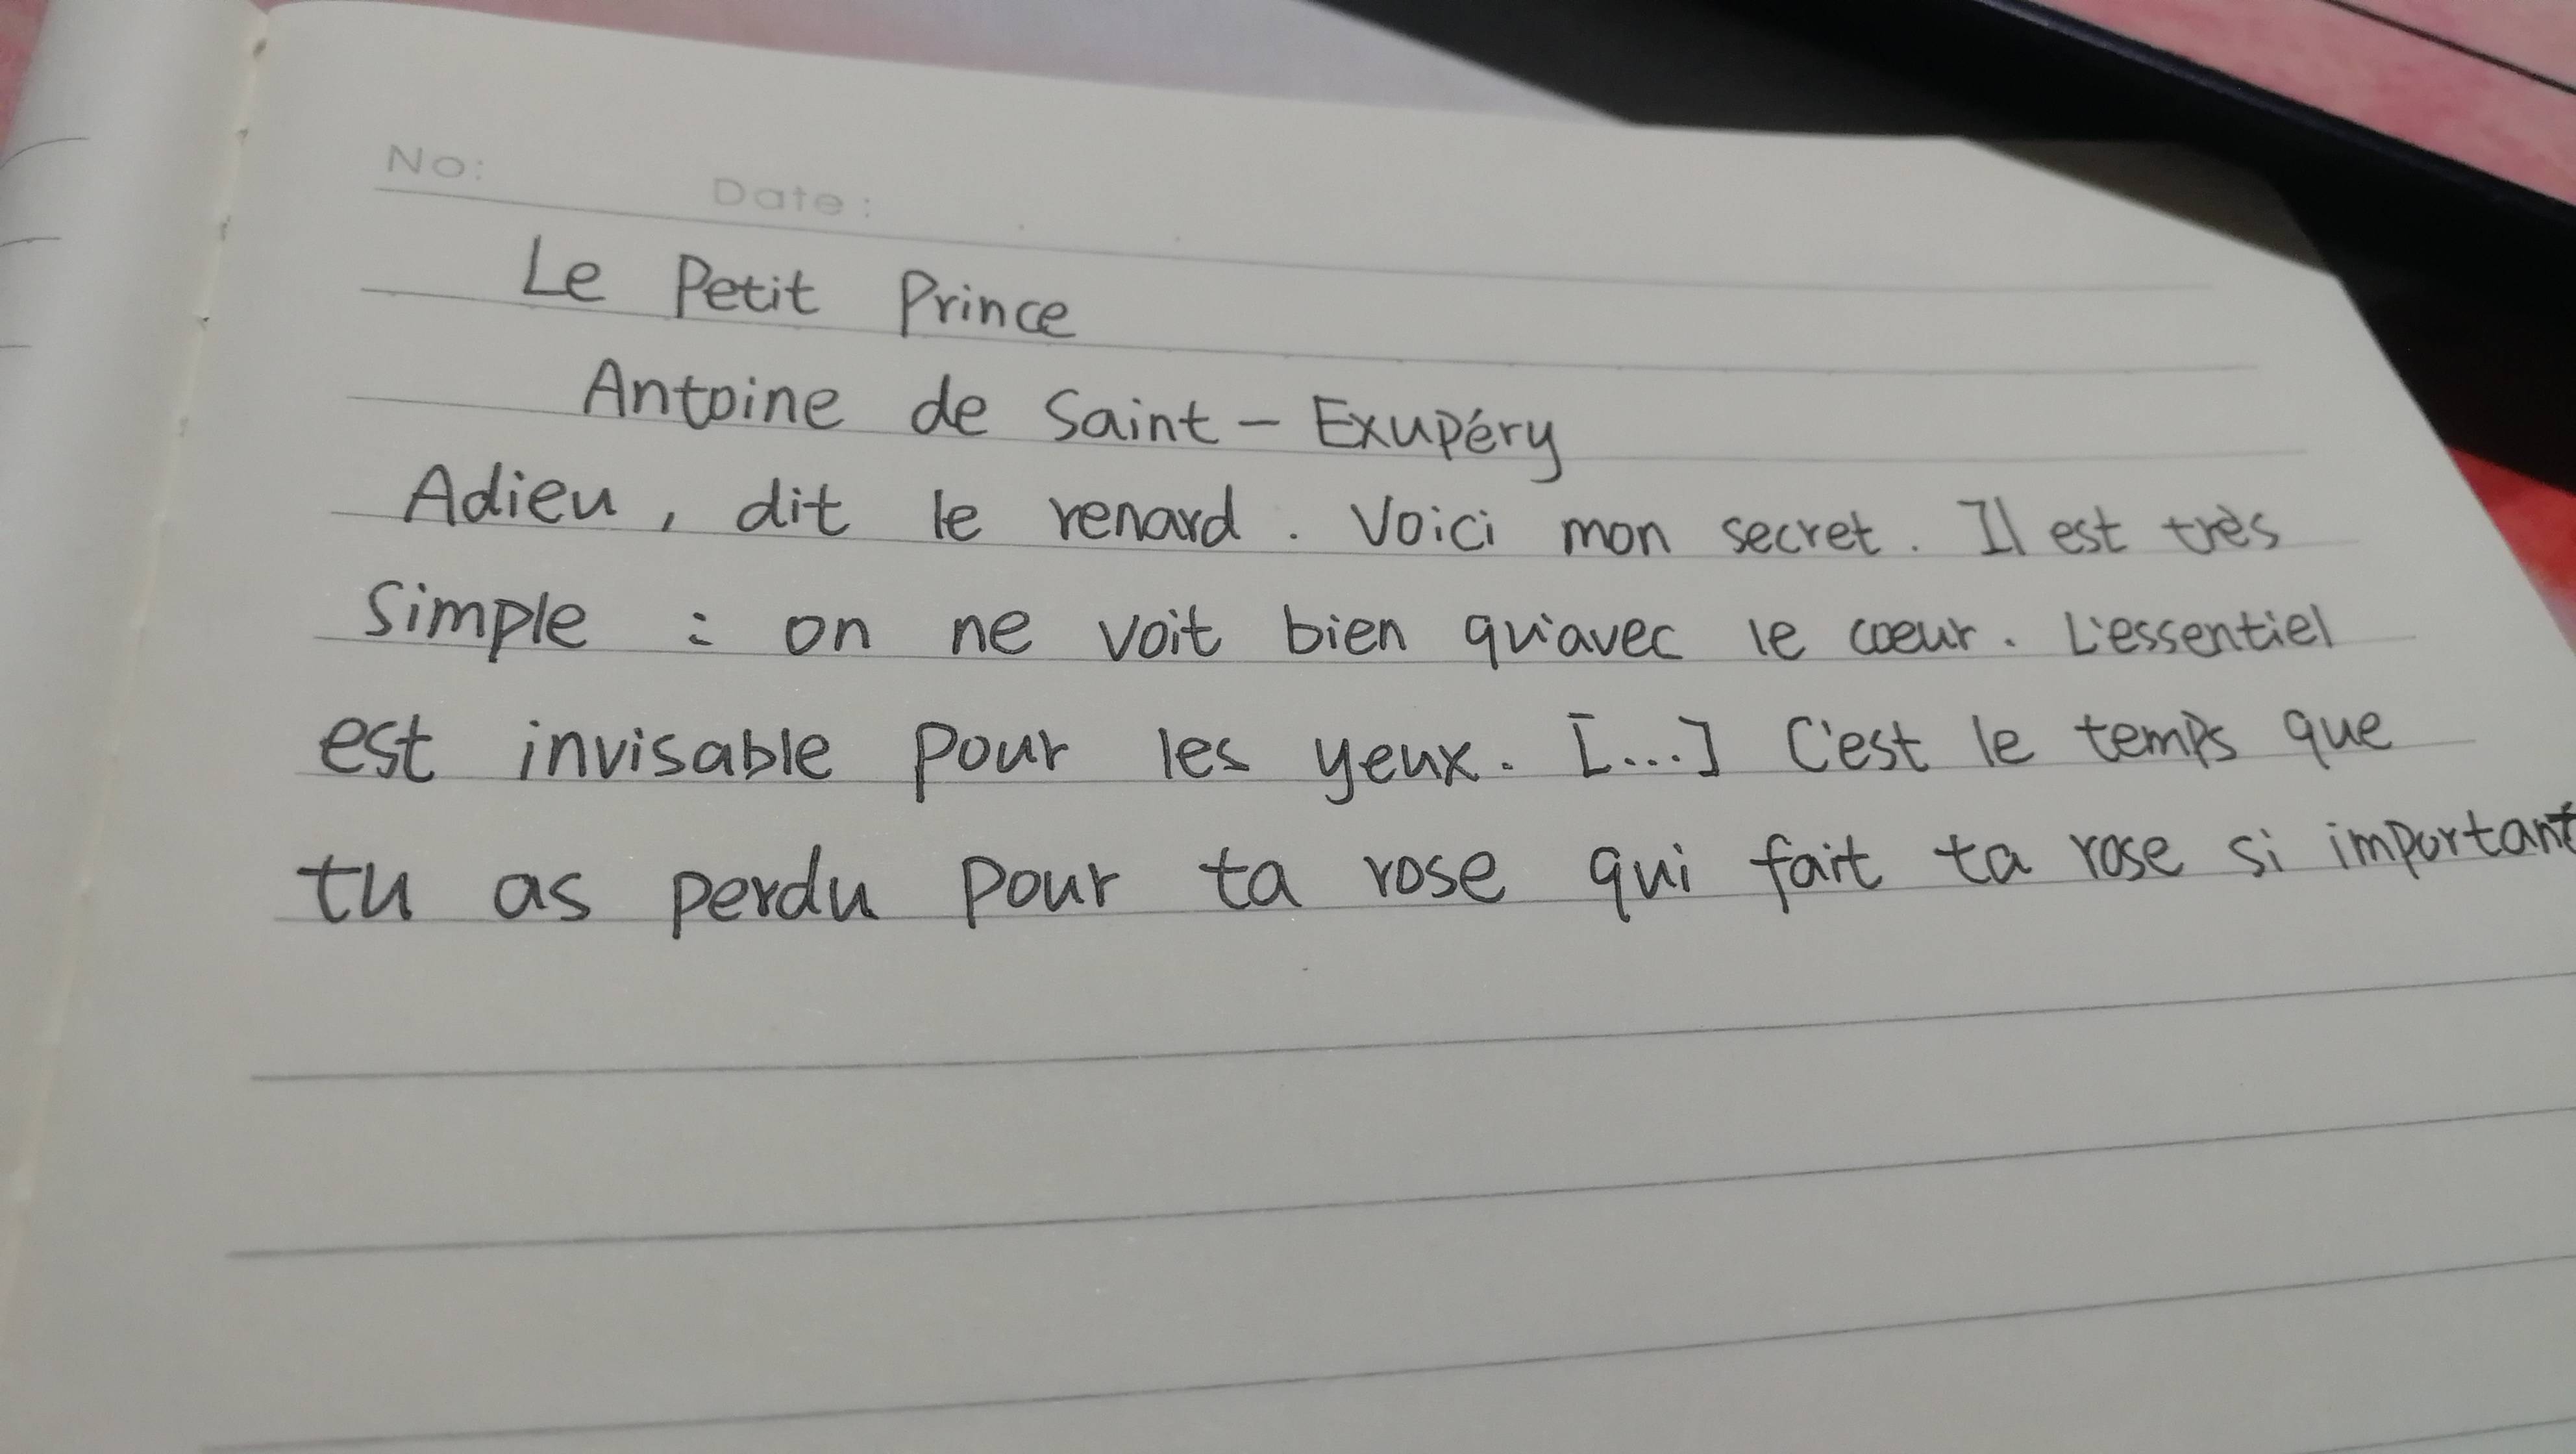 No: Date:
Le Petit Prince
Antoine de Saint-Exupéry
Adieu, dit le renard. Voici mon secret. Il est très
simple : on ne voit bien qu'avec le cœur. L'essentiel
est invisable pour les yeux. [...] C'est le temps que
tu as perdu pour ta rose qui fait ta rose si important